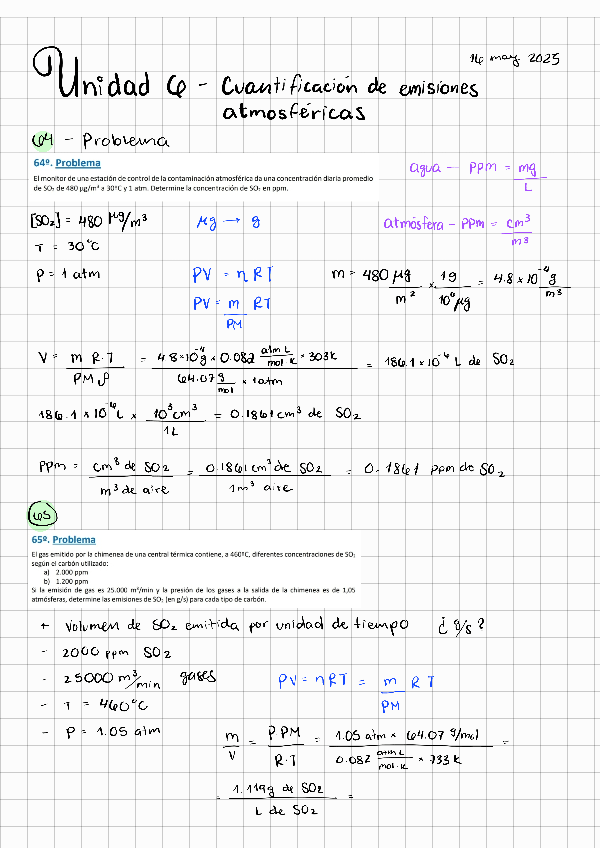 16 may 2025
Unidad 6 - Cuantificación de emisiones
atmosféricas
64 - Problema
64º. Problema
El monitor de una estación de control de la contaminación atmosférica da una concentración diaria promedio
de SO₂ de 480 µg/m³ a 30ºC y 1 atm. Determine la concentración de SO₂ en ppm.
agua — ppm = mg/L
atmósfera - ppm = cm³/m³
[SO₂] = 480 µg/m³
µg → g
T = 30°C
P = 1 atm
PV = nRT
m = 480 µg/m² × 1g/10⁶µg = 4.8 × 10⁻⁴g/m³
PV = m/PM RT
V = m R·T/PM P = 4.8×10⁻⁴g × 0.082 atm L/mol K × 303K/64.07 g/mol × 1atm = 186.1 × 10⁻⁶ L de SO₂
186.1 × 10⁻⁶L × 10³cm³/1L = 0.1861cm³ de SO₂
ppm = cm³ de SO₂/m³ de aire = 0.1861cm³ de SO₂/1m³ aire = 0.1861 ppm de SO₂
65
65º. Problema
El gas emitido por la chimenea de una central térmica contiene, a 460ºC, diferentes concentraciones de SO₂
según el carbón utilizado:
a) 2.000 ppm
b) 1.200 ppm
Si la emisión de gas es 25.000 m³/min y la presión de los gases a la salida de la chimenea es de 1,05
atmósferas, determine las emisiones de SO₂ (en g/s) para cada tipo de carbón.
+ Volumen de SO₂ emitida por unidad de tiempo ¿g/s?
- 2000 ppm SO₂
- 25000 m³/min gases
PV = nRT = m/PM RT
- T = 460°C
- P = 1.05 atm
m/V = P.PM/R.T = 1.05 atm × 64.07 g/mol/0.082 atm L/mol·K × 733 K =
= 1.119g de SO₂/L de SO₂ =